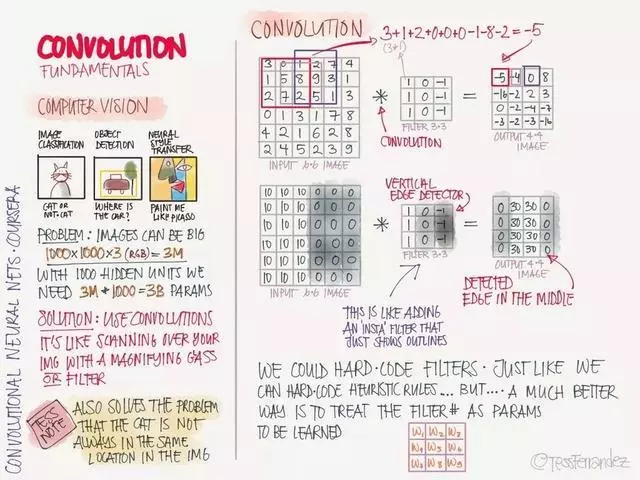 CONVOLUTIONAL NEURAL NETS · COURSERA
CONVOLUTION
FUNDAMENTALS
COMPUTER VISION
IMAGE
CLASSIFICATION
CAT OR
NOT CAT
OBJECT
DETECTION
WHERE IS
THE CAR?
NEURAL
STYLE
TRANSFER
PAINT ME
LIKE PICASSO
PROBLEM: IMAGES CAN BE BIG
1000×1000×3 (RGB) = 3M
WITH 1000 HIDDEN UNITS WE
NEED 3M * 1000 = 3B PARAMS
SOLUTION: USE CONVOLUTIONS
IT'S LIKE SCANNING OVER YOUR
IMG WITH A MAGNIFYING GLASS
OR FILTER
TESS NOTE
ALSO SOLVES THE PROBLEM
THAT THE CAT IS NOT
ALWAYS IN THE SAME
LOCATION IN THE IMG
CONVOLUTION
3+1+2+0+0+0-1-8-2=-5
(3*1)
3 0 1 2 7 4
1 5 8 9 3 1
2 7 2 5 1 3
0 1 3 1 7 8
4 2 1 6 2 8
2 4 5 2 3 9
INPUT 6·6 IMAGE
*
CONVOLUTION
1 0 -1
1 0 -1
1 0 -1
FILTER 3×3
=
-5 -4 0 8
-10 -2 2 3
0 -2 -4 -7
-3 -2 -3 -16
OUTPUT 4·4
IMAGE
10 10 10 0 0 0
10 10 10 0 0 0
10 10 10 0 0 0
10 10 10 0 0 0
10 10 10 0 0 0
10 10 10 0 0 0
INPUT 6·6 IMAGE
*
VERTICAL
EDGE DETECTOR
1 0 -1
1 0 -1
1 0 -1
FILTER 3×3
=
0 30 30 0
0 30 30 0
0 30 30 0
0 30 30 0
OUTPUT 4·4
IMAGE
THIS IS LIKE ADDING
AN 'INSTA' FILTER THAT
JUST SHOWS OUTLINES
DETECTED
EDGE IN THE MIDDLE
WE COULD HARD·CODE FILTERS · JUST LIKE WE
CAN HARD·CODE HEURISTIC RULES... BUT... A MUCH BETTER
WAY IS TO TREAT THE FILTER # AS PARAMS
TO BE LEARNED
W1 W2 W3
W4 W5 W6
W7 W8 W9
@TessFerrandez